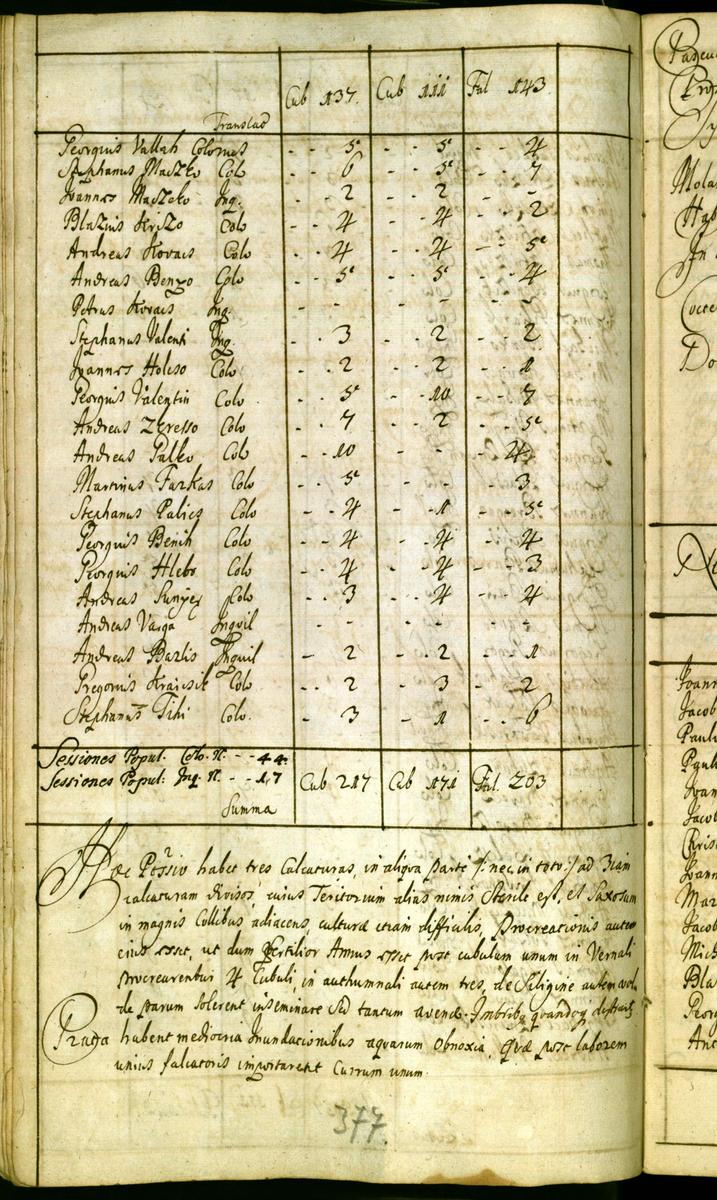 Translat Cub 137. Cub 111 Fal 143
Georgius Vallah Colonus - - 5 - - 5 - - 4
Stephanus Maczko Colo - - 6 - - 5 - - 7
Joannes Maczko Inq. - - 2 - - 2 - - -
Blazius Krizo Colo - - 4 - - 4 - - 2
Andreas Kovacs Colo - - 4 - - 4 - - 5
Andreas Benzo Colo - - 5 - - 5 - - 4
Petrus Kovacs Inq. - - - - - -
Stephanus Valenti Inq. - - 3 - - 2 - - 2
Joannes Holeso Colo - - 2 - - 2 - - 1
Georgius Valentin Colo - - 5 - - 10 - - 7
Andreas Colo - - 7 - - 2 - - 5
Andreas Palko Colo - - 10 - - - - - 4
Martinus Farkas Colo - - 5 - - - - - 3
Stephanus Palics Colo - - 4 - - 1 - - 5
Georgius Benih Colo - - 4 - - 4 - - 4
Georgius Hlebo Colo - - 4 - - 4 - - 3
Andreas Colo - - 3 - - 4 - - 4
Andreas Varga Inquil - - - - - -
Andreas Bazlis Inquil - - 2 - - 2 - - 1
Gregorius Kraicsik Colo - - 2 - - 3 - - 2
Stephanus Tihi Colo. - - 3 - - 1 - - 6
Sessiones Popul. Colo. N. - - 44.
Sessiones Popul. Inq. N. - - 17 Cub 217 Cub 171 Fal. 203
Summa
Haec Possio habet tres Calcaturas, in aliqua parte /: nec in toto :/ ad 3iam
calcaturam divisos, cuius Teritorium alias nimis Sterile est, et Saxosum
in magnis Collibus adiacens, culturae etiam difficilis, Procreationis autem
eius esset, ut dum fertilior Annus esset post cubulum unum in Vernali
procrearentur 4 Cubuli, in authumnali autem tres, de Siligine autem
de parum solerent inseminare sed tantum avenae. Imbribus quandoque
Prata habent mediocria Inundacionibus aquarum obnoxia, quae post laborem
unius falcatoris importarent Currum unum.
377.